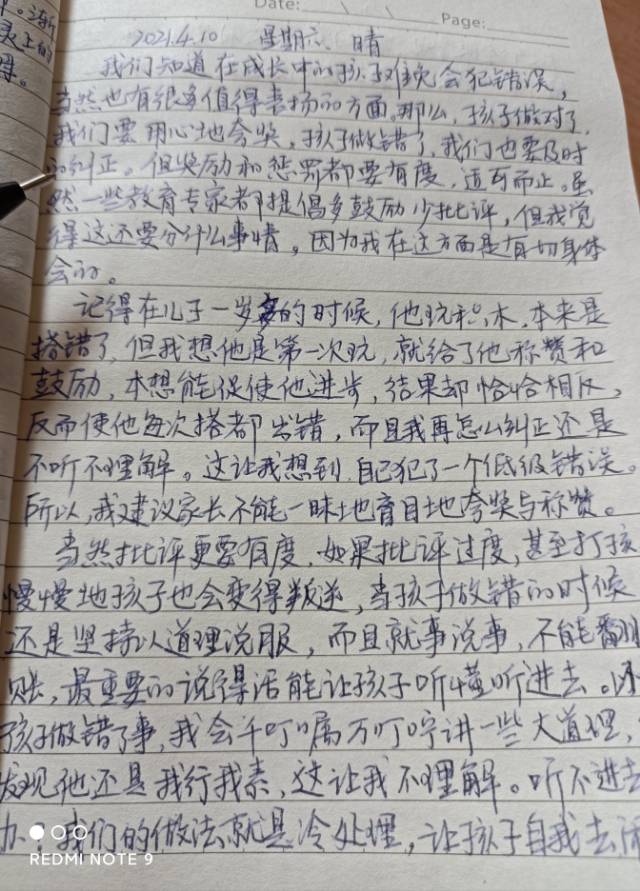 Date:
Page:
2021.4.10 星期六 晴
我们知道在成长中的孩子难免会犯错误,
当然也有很多值得表扬的方面。那么,孩子做对了,
我们要用心地夸奖,孩子做错了,我们也要及时
的纠正。但奖励和惩罚都要有度,适可而止。虽
然一些教育专家都提倡多鼓励少批评,但我觉
得这还要分什么事情,因为我在这方面是有切身体
会的。
记得在儿子一岁多的时候,他玩积木,本来是
搭错了,但我想他是第一次玩,就给了他称赞和
鼓励,本想能促使他进步,结果却恰恰相反,
反而使他每次搭都出错,而且我再怎么纠正还是
不听不理解。这让我想到自己犯了一个低级错误。
所以,我建议家长不能一昧地盲目地夸奖与称赞。
当然批评更要有度,如果批评过度,甚至打孩
慢慢地孩子也会变得叛逆,当孩子做错的时候
还是坚持以道理说服,而且就事说事,不能翻旧
账,最重要的说得话能让孩子听懂听进去。
孩子做错了事,我会千叮嘱万叮咛讲一些大道理,
发现他还是我行我素,这让我不理解。听不进去
办,我们的做法就是冷处理,让孩子自我去
REDMI NOTE 9